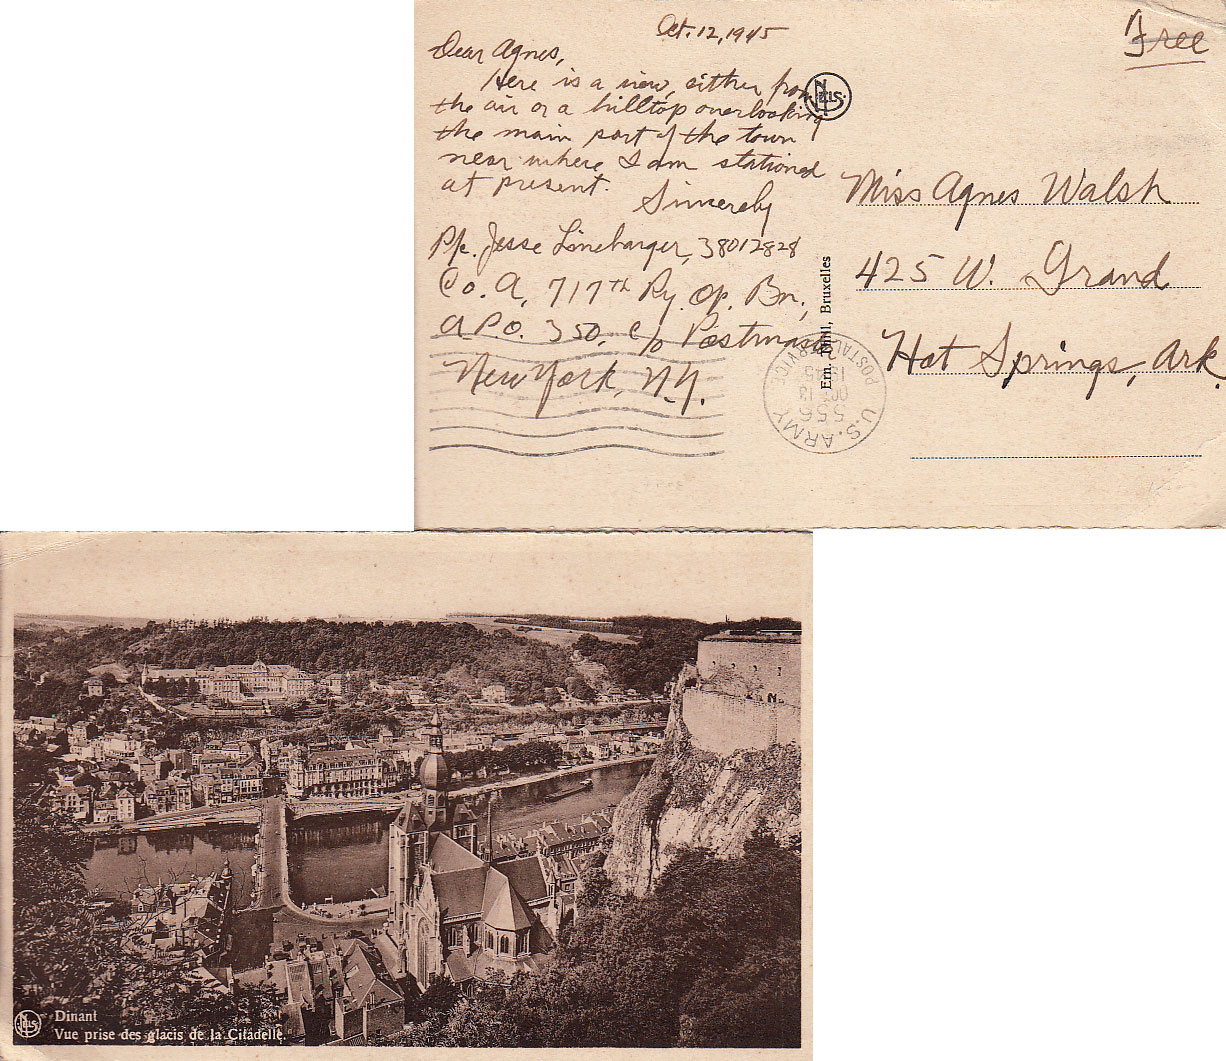 Oct. 12, 1945
Free
Dear Agnes,
Here is a view, either from
the air or a hilltop overlooking
the main part of the town
near where I am stationed
at present.
Sincerely
Pfc. Jesse Linebarger, 38012828
Co. A, 717th Ry. Op. Bn.,
A.P.O. 350, c/o Postmaster
New York, N.Y.
NELS
Ern. Thill, Bruxelles
Miss Agnes Walsh
425 W. Grand
Hot Springs, Ark.
U.S. ARMY
POSTAL SERVICE
556
OCT 13
1945
NELS
Dinant
Vue prise des glacis de la Citadelle.